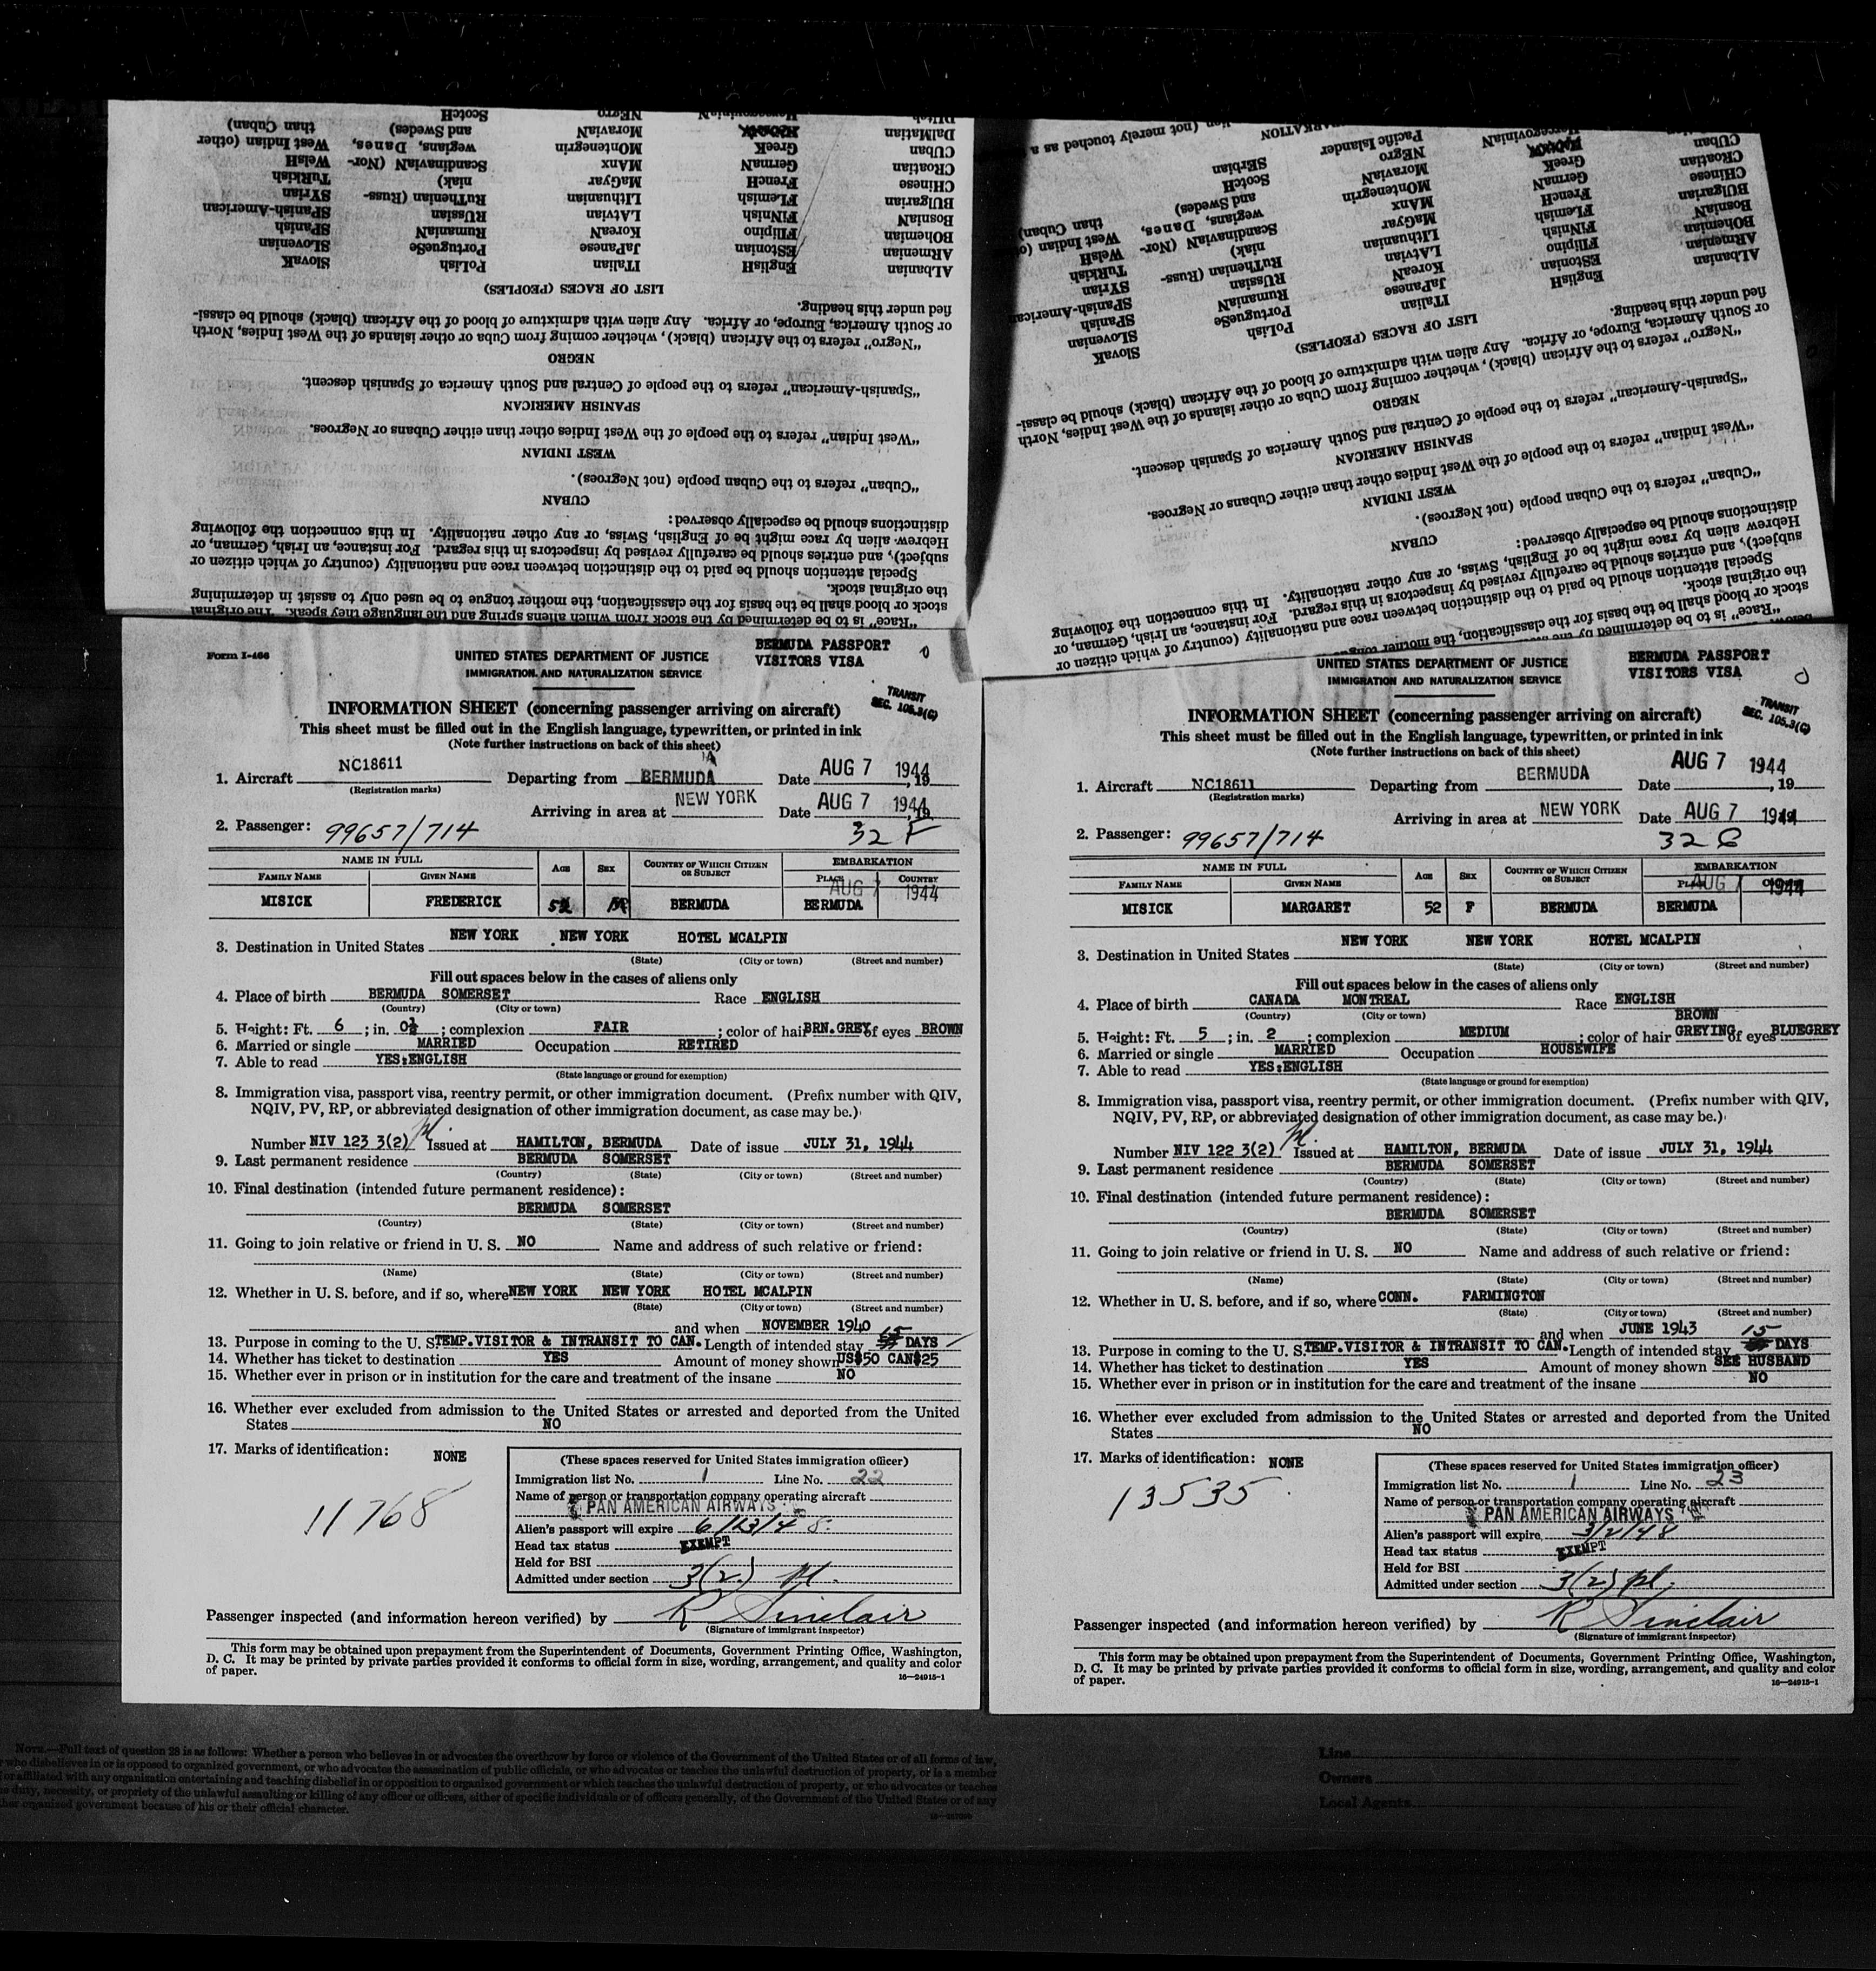 DUtch HercegovinIaN NEgro ScotcH
DalMatian MoraviaN and Swedes) than Cuban)
CUban GreeK MOntenegrin wegians, Danes, West Indian (other
CRoatian GermaN MAnx ScandinaviaN (Nor- WelsH
CHinese FrencH MaGyar niak) TuRkish
BUlgarian FLemish LIthuanian RuThenian (Russ- SYrian
BosniaN FINnish LAtvian RUssian SPanish-American
BOhemian FIlipino KoreaN RumaniaN SPanish
ARmenian EStonian JaPanese PortugueSe SLovenian
ALbanian EnglisH ITalian PoLish SlovaK
LIST OF RACES (PEOPLES)
fied under this heading.
or South America, Europe, or Africa. Any alien with admixture of blood of the African (black) should be classi-
"Negro" refers to the African (black), whether coming from Cuba or other islands of the West Indies, North
NEGRO
"Spanish-American" refers to the people of Central and South America of Spanish descent.
SPANISH AMERICAN
"West Indian" refers to the people of the West Indies other than either Cubans or Negroes.
WEST INDIAN
"Cuban" refers to the Cuban people (not Negroes).
CUBAN
distinctions should be especially observed:
Hebrew alien by race might be of English, Swiss, or any other nationality. In this connection the following
subject), and entries should be carefully revised by inspectors in this regard. For instance, an Irish, German, or
Special attention should be paid to the distinction between race and nationality (country of which citizen or
the original stock.
stock or blood shall be the basis for the classification, the mother tongue to be used only to assist in determining
"Race" is to be determined by the stock from which aliens spring and the language they speak. The original
Form I-466
UNITED STATES DEPARTMENT OF JUSTICE
IMMIGRATION AND NATURALIZATION SERVICE
BERMUDA PASSPORT
VISITORS VISA
TRANSIT
SEC. 105.3(C)
INFORMATION SHEET (concerning passenger arriving on aircraft)
This sheet must be filled out in the English language, typewritten, or printed in ink
(Note further instructions on back of this sheet)
1. Aircraft NC18611 Departing from BERMUDA Date AUG 7 1944, 19
(Registration marks)
Arriving in area at NEW YORK Date AUG 7 1944, 19
2. Passenger: 99657/714 32 F
NAME IN FULL Age Sex Country of Which Citizen or Subject EMBARKATION
Family Name Given Name Place Country
AUG 7 1944
MISICK FREDERICK 52 M BERMUDA BERMUDA
3. Destination in United States NEW YORK NEW YORK HOTEL MCALPIN
(State) (City or town) (Street and number)
Fill out spaces below in the cases of aliens only
4. Place of birth BERMUDA SOMERSET Race ENGLISH
(Country) (City or town)
5. Height: Ft. 6 ; in. 0½ ; complexion FAIR ; color of hair BRN.GREY of eyes BROWN
6. Married or single MARRIED Occupation RETIRED
7. Able to read YES:ENGLISH
(State language or ground for exemption)
8. Immigration visa, passport visa, reentry permit, or other immigration document. (Prefix number with QIV,
NQIV, PV, RP, or abbreviated designation of other immigration document, as case may be.)
Number NIV 123 3(2) Issued at HAMILTON, BERMUDA Date of issue JULY 31, 1944
9. Last permanent residence BERMUDA SOMERSET
(Country) (State) (City or town) (Street and number)
10. Final destination (intended future permanent residence):
BERMUDA SOMERSET
(Country) (State) (City or town) (Street and number)
11. Going to join relative or friend in U. S. NO Name and address of such relative or friend:
(Name) (State) (City or town) (Street and number)
12. Whether in U. S. before, and if so, where NEW YORK NEW YORK HOTEL MCALPIN
(State) (City or town) (Street and number)
and when NOVEMBER 1940
13. Purpose in coming to the U. S. TEMP.VISITOR & INTRANSIT TO CAN. Length of intended stay 15 DAYS
14. Whether has ticket to destination YES Amount of money shown US$50 CAN$25
15. Whether ever in prison or in institution for the care and treatment of the insane NO
16. Whether ever excluded from admission to the United States or arrested and deported from the United
States NO
17. Marks of identification: NONE
11768
(These spaces reserved for United States immigration officer)
Immigration list No. 1 Line No. 22
Name of person or transportation company operating aircraft
PAN AMERICAN AIRWAYS
Alien's passport will expire 6/23/48
Head tax status EXEMPT
Held for BSI
Admitted under section 3(2) pl.
Passenger inspected (and information hereon verified) by R Sinclair
(Signature of immigrant inspector)
This form may be obtained upon prepayment from the Superintendent of Documents, Government Printing Office, Washington,
D. C. It may be printed by private parties provided it conforms to official form in size, wording, arrangement, and quality and color
of paper.
16—24915-1
(not merely touched as a
Pacific Islander
CUban HercegoviniaN NEgro SErbian
CRoatian GreeK MoraviaN ScotcH
CHinese GermaN MOntenegrin and Swedes) than Cuban)
BUlgarian FrencH MAnx wegians, Danes, West Indian (o
BosniaN FLemish MaGyar ScandinaviaN (Nor- WelsH
BOhemian FINnish LIthuanian niak) TuRkish
ARmenian FIlipino LAtvian RuThenian (Russ- SYrian
ALbanian EStonian KoreaN RUssian SPanish-American
EnglisH JaPanese RumaniaN SPanish
ITalian PortugueSe SLovenian
PoLish SlovaK
LIST OF RACES (PEOPLES)
fied under this heading.
or South America, Europe, or Africa. Any alien with admixture of blood of the African (black) should be classi-
"Negro" refers to the African (black), whether coming from Cuba or other islands of the West Indies, North
NEGRO
"Spanish-American" refers to the people of Central and South America of Spanish descent.
SPANISH AMERICAN
"West Indian" refers to the people of the West Indies other than either Cubans or Negroes.
WEST INDIAN
"Cuban" refers to the Cuban people (not Negroes).
CUBAN
distinctions should be especially observed:
Hebrew alien by race might be of English, Swiss, or any other nationality. In this connection the following
subject), and entries should be carefully revised by inspectors in this regard. For instance, an Irish, German, or
Special attention should be paid to the distinction between race and nationality (country of which citizen or
the original stock.
stock or blood shall be the basis for the classification, the mother tongue
"Race" is to be determined by the
UNITED STATES DEPARTMENT OF JUSTICE
IMMIGRATION AND NATURALIZATION SERVICE
BERMUDA PASSPORT
VISITORS VISA
TRANSIT
SEC. 105.3(C)
INFORMATION SHEET (concerning passenger arriving on aircraft)
This sheet must be filled out in the English language, typewritten, or printed in ink
(Note further instructions on back of this sheet)
1. Aircraft NC18611 Departing from BERMUDA Date AUG 7 1944, 19
(Registration marks)
Arriving in area at NEW YORK Date AUG 7 1944
2. Passenger: 99657/714 32 G
NAME IN FULL Age Sex Country of Which Citizen or Subject EMBARKATION
Family Name Given Name Place Country
AUG 7 1944
MISICK MARGARET 52 F BERMUDA BERMUDA
3. Destination in United States NEW YORK NEW YORK HOTEL MCALPIN
(State) (City or town) (Street and number)
Fill out spaces below in the cases of aliens only
4. Place of birth CANADA MONTREAL Race ENGLISH
(Country) (City or town)
5. Height: Ft. 5 ; in. 2 ; complexion MEDIUM ; color of hair BROWN GREYING of eyes BLUEGREY
6. Married or single MARRIED Occupation HOUSEWIFE
7. Able to read YES:ENGLISH
(State language or ground for exemption)
8. Immigration visa, passport visa, reentry permit, or other immigration document. (Prefix number with QIV,
NQIV, PV, RP, or abbreviated designation of other immigration document, as case may be.)
Number NIV 122 3(2) Issued at HAMILTON, BERMUDA Date of issue JULY 31, 1944
9. Last permanent residence BERMUDA SOMERSET
(Country) (State) (City or town) (Street and number)
10. Final destination (intended future permanent residence):
BERMUDA SOMERSET
(Country) (State) (City or town) (Street and number)
11. Going to join relative or friend in U. S. NO Name and address of such relative or friend:
(Name) (State) (City or town) (Street and number)
12. Whether in U. S. before, and if so, where CONN. FARMINGTON
(State) (City or town) (Street and number)
and when JUNE 1943
13. Purpose in coming to the U. S. TEMP.VISITOR & INTRANSIT TO CAN. Length of intended stay 15 DAYS
14. Whether has ticket to destination YES Amount of money shown SEE HUSBAND
15. Whether ever in prison or in institution for the care and treatment of the insane NO
16. Whether ever excluded from admission to the United States or arrested and deported from the United
States NO
17. Marks of identification: NONE
13535
(These spaces reserved for United States immigration officer)
Immigration list No. 1 Line No. 23
Name of person or transportation company operating aircraft
PAN AMERICAN AIRWAYS
Alien's passport will expire 3/2/48
Head tax status EXEMPT
Held for BSI
Admitted under section 3(2) pl.
Passenger inspected (and information hereon verified) by R Sinclair
(Signature of immigrant inspector)
This form may be obtained upon prepayment from the Superintendent of Documents, Government Printing Office, Washington,
D. C. It may be printed by private parties provided it conforms to official form in size, wording, arrangement, and quality and color
of paper.
16—24915-1
Note.—Full text of question 28 is as follows: Whether a person who believes in or advocates the overthrow by force or violence of the Government of the United States or of all forms of law,
who disbelieves in or is opposed to organized government, or who advocates the assassination of public officials, or who advocates or teaches the unlawful destruction of property, or is a member
or affiliated with any organization entertaining and teaching disbelief in or opposition to organized government or which teaches the unlawful destruction of property, or who advocates or teaches
duty, necessity, or propriety of the unlawful assaulting or killing of any officer or officers, either of specific individuals or of officers generally, of the Government of the United States or of any
other organized government because of his or their official character.
Line
Owners
Local Agents